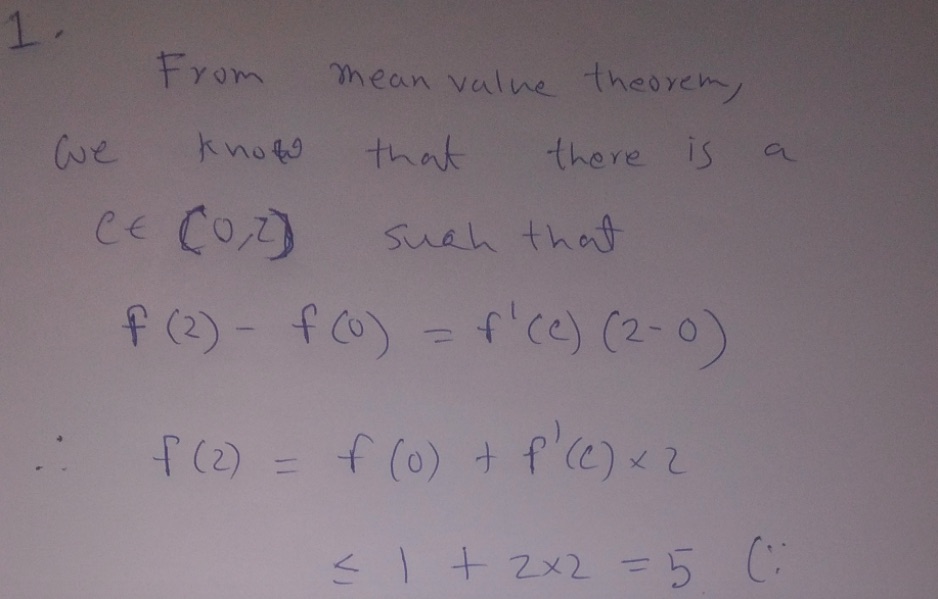 1.
From mean value theorem,
We know that there is a
c ∈ (0,2) such that
f(2) - f(0) = f'(c) (2-0)
∴ f(2) = f(0) + f'(c) × 2
≤ 1 + 2×2 = 5 (∵